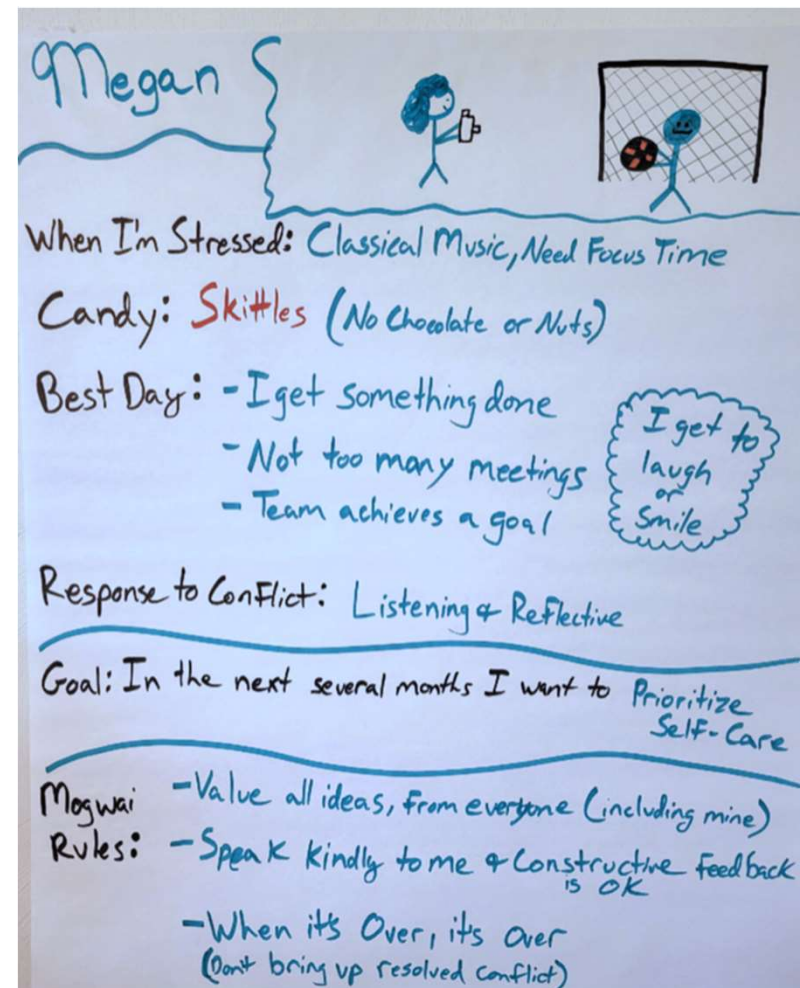 Megan
When I'm Stressed: Classical Music, Need Focus Time
Candy: Skittles (No Chocolate or Nuts)
Best Day: - I get something done
- Not too many meetings
- Team achieves a goal
I get to
laugh
or
Smile
Response to Conflict: Listening & Reflective
Goal: In the next several months I want to Prioritize
Self-Care
Mogwai
Rules:
- Value all ideas, from everyone (including mine)
- Speak Kindly to me & Constructive Feedback
is OK
- When it's Over, it's Over
(Don't bring up resolved conflict)